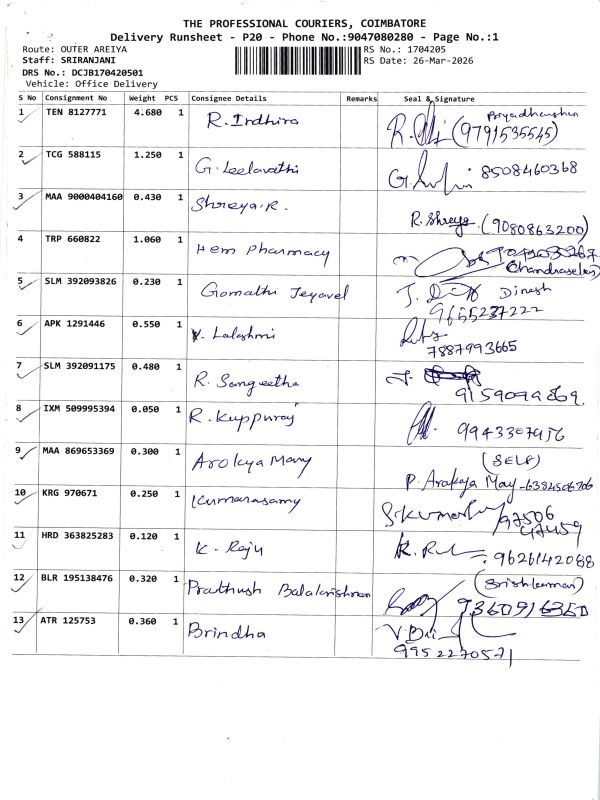 THE PROFESSIONAL COURIERS, COIMBATORE
Delivery Runsheet - P20 - Phone No.:9047080280 - Page No.:1
Route: OUTER AREIYA
RS No.: 1704205
Staff: SRIRANJANI
RS Date: 26-Mar-2026
DRS No.: DCJB170420501
Vehicle: Office Delivery
S No Consignment No Weight PCS Consignee Details Remarks Seal & Signature
1 TEN 8127771 4.680 1 R. Irdhira
(9791535545)
2 TCG 588115 1.250 1 G. Leelavathi 8508460368
3 MAA 9000404160 0.430 1 Shreya.R. R. Shreya (9080863200)
4 TRP 660822 1.060 1 Hem Pharmacy
5 SLM 392093826 0.230 1 Gomathi Jeyavel Dinesh
9655237222
6 APK 1291446 0.550 1 V. Lalashmi
7887993665
7 SLM 392091175 0.480 1 R. Sangeetha
8 IXM 509995394 0.050 1 R. Kuppuraj
9943307456
9 MAA 869653369 0.300 1 Arokya Mary (SELF)
P. Arakya May - 6384506706
10 KRG 970671 0.250 1 Kumarasamy
97506
47459
11 HRD 363825283 0.120 1 K. Raju 9626142088
12 BLR 195138476 0.320 1 Prathush Balakrishnan
9360916350
13 ATR 125753 0.360 1 Brindha
9952270571